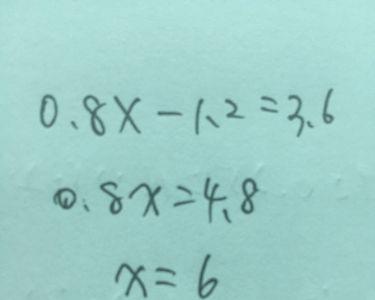 0.8x-1.2=3.6
0.8x=4.8
x=6